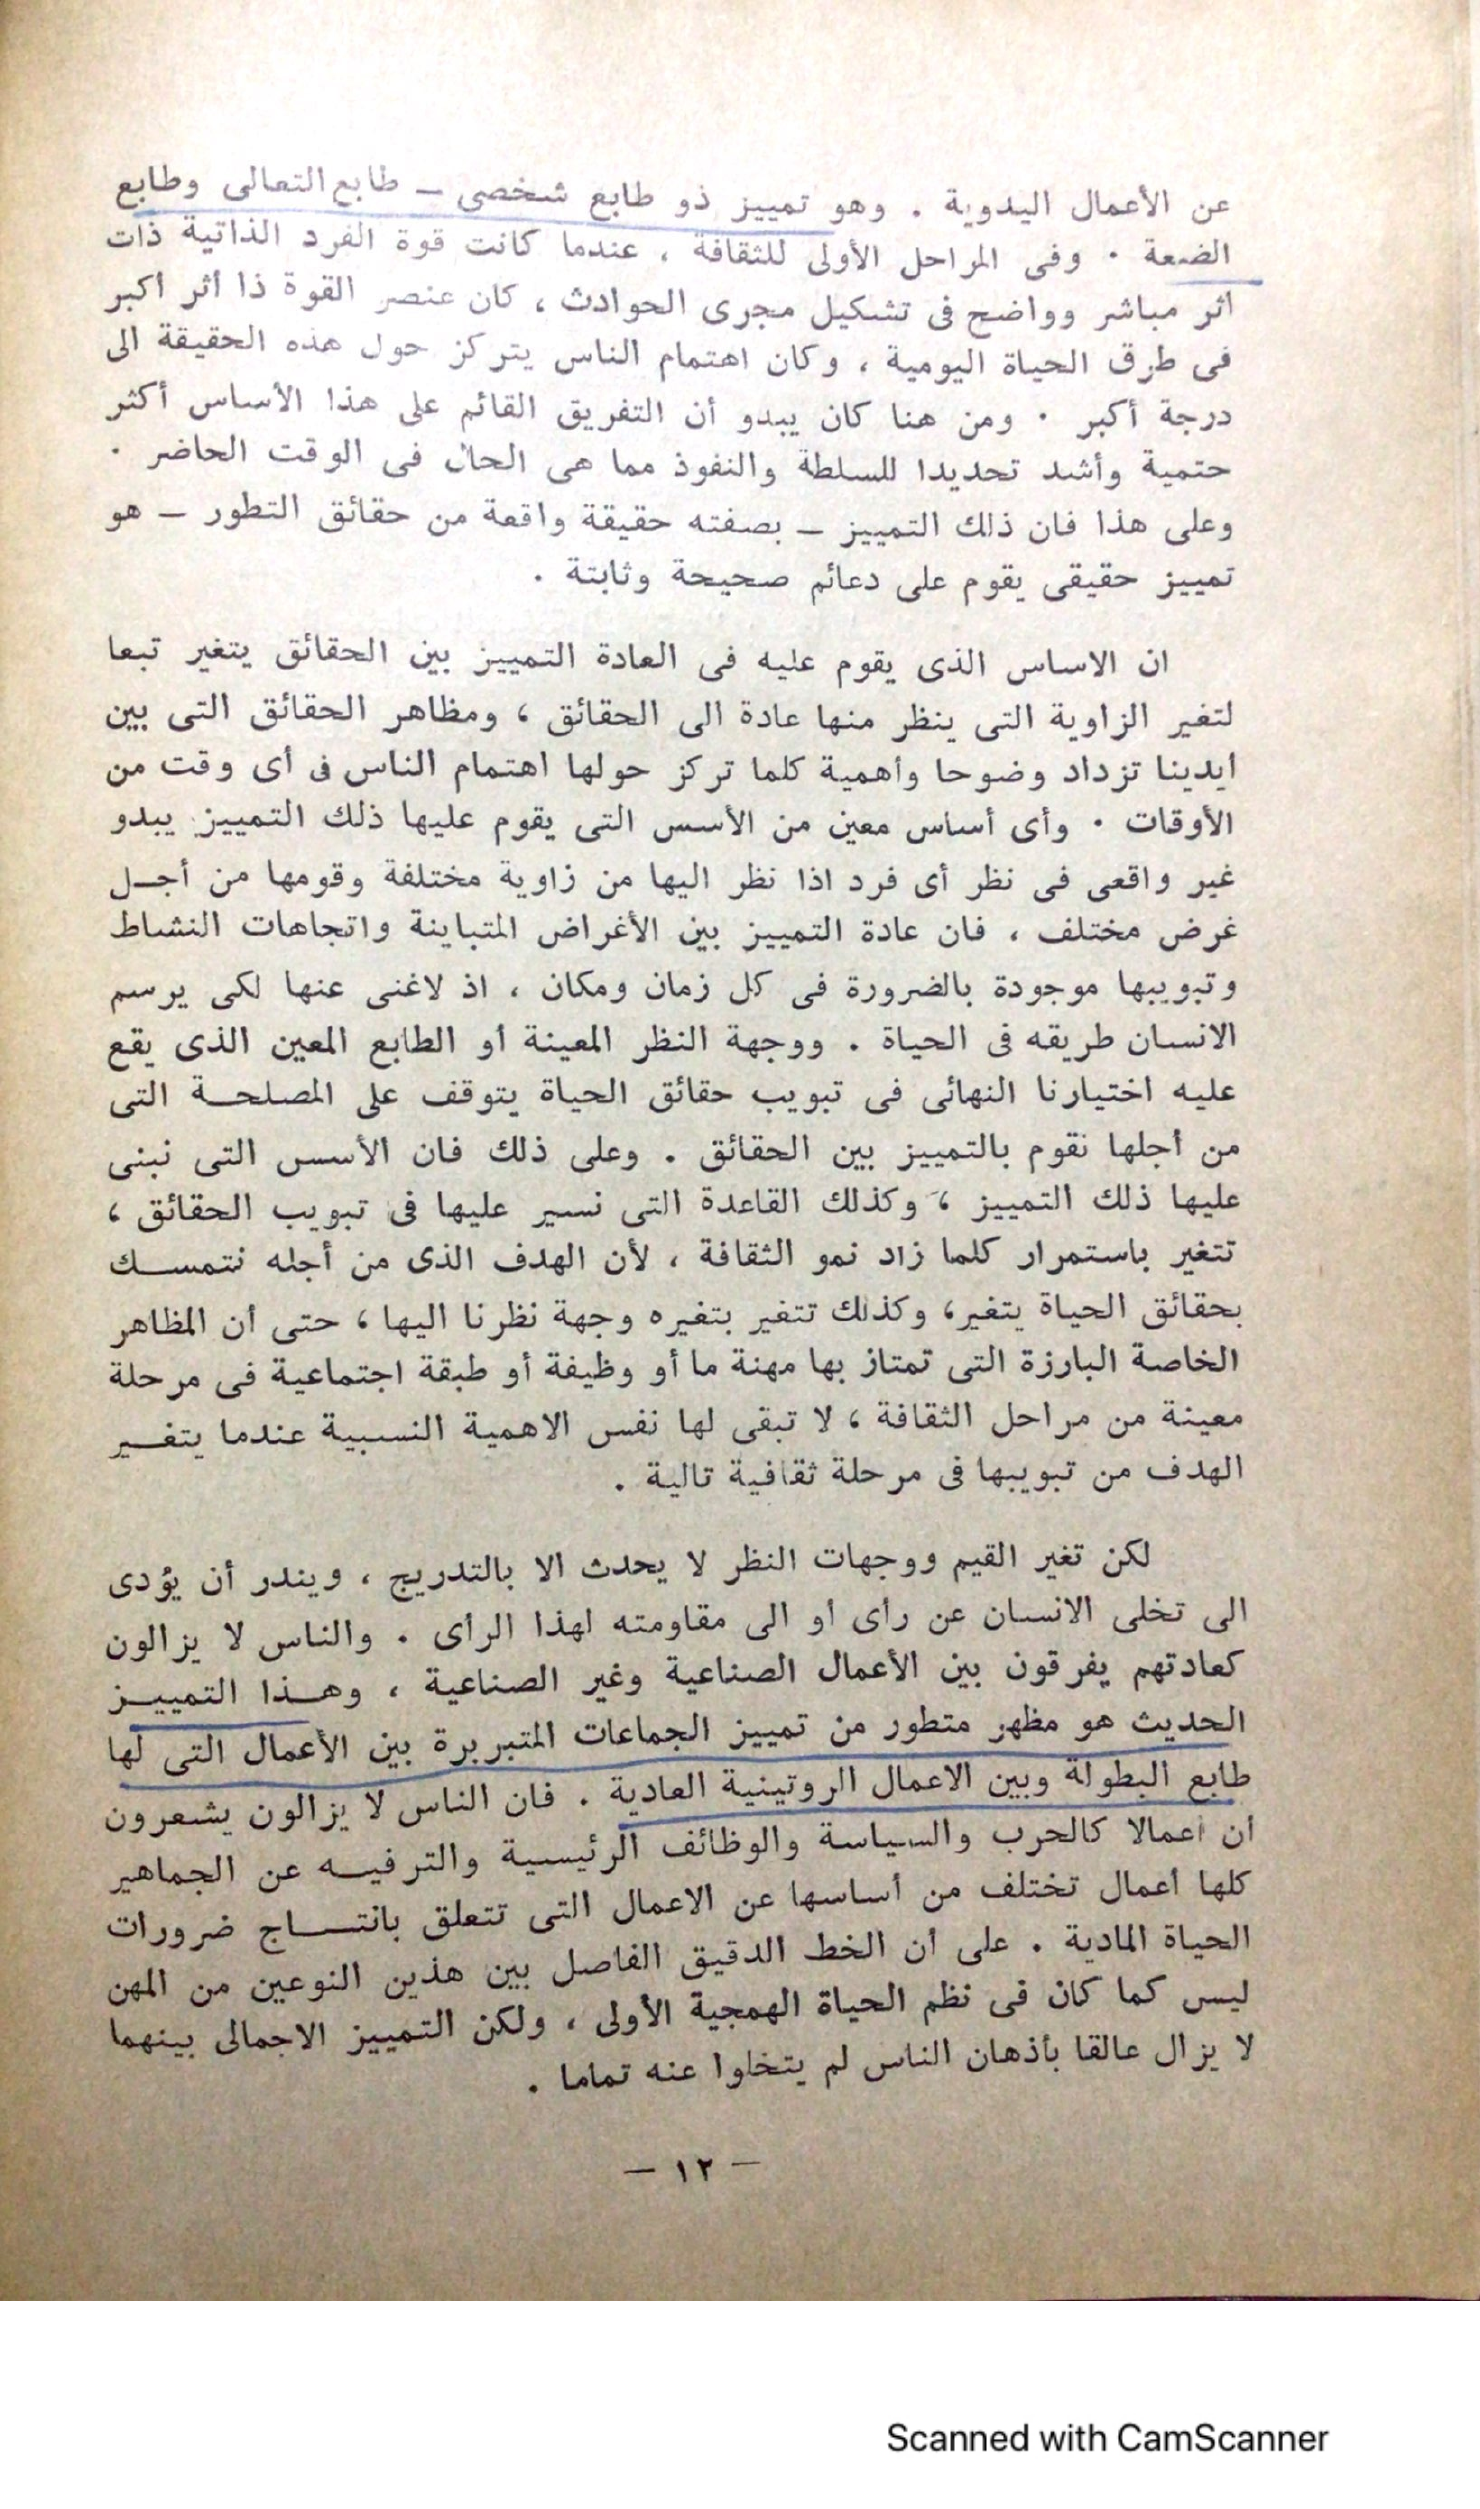 عن الأعمال اليدوية . وهو تمييز ذو طابع شخصى – طابع التعالى وطابع
الضعة . وفى المراحل الأولى للثقافة ، عندما كانت قوة الفرد الذاتية ذات
اثر مباشر وواضح فى تشكيل مجرى الحوادث ، كان عنصر القوة ذا أثر أكبر
فى طرق الحياة اليومية ، وكان اهتمام الناس يتركز حول هذه الحقيقة الى
درجة أكبر . ومن هنا كان يبدو أن التفريق القائم على هذا الأساس أكثر
حتمية وأشد تحديدا للسلطة والنفوذ مما هى الحال فى الوقت الحاضر .
وعلى هذا فان ذلك التمييز – بصفته حقيقة واقعة من حقائق التطور – هو
تمييز حقيقى يقوم على دعائم صحيحة وثابتة .
ان الاساس الذى يقوم عليه فى العادة التمييز بين الحقائق يتغير تبعا
لتغير الزاوية التى ينظر منها عادة الى الحقائق ، ومظاهر الحقائق التى بين
ايدينا تزداد وضوحا وأهمية كلما تركز حولها اهتمام الناس فى أى وقت من
الأوقات . وأى أساس معين من الأسس التى يقوم عليها ذلك التمييز يبدو
غير واقعى فى نظر أى فرد اذا نظر اليها من زاوية مختلفة وقومها من أجل
غرض مختلف ، فان عادة التمييز بين الأغراض المتباينة واتجاهات النشاط
وتبويبها موجودة بالضرورة فى كل زمان ومكان ، اذ لاغنى عنها لكى يرسم
الانسان طريقه فى الحياة . ووجهة النظر المعينة أو الطابع المعين الذى يقع
عليه اختيارنا النهائى فى تبويب حقائق الحياة يتوقف على المصلحة التى
من أجلها نقوم بالتمييز بين الحقائق . وعلى ذلك فان الأسس التى نبنى
عليها ذلك التمييز ، وكذلك القاعدة التى نسير عليها فى تبويب الحقائق ،
تتغير باستمرار كلما زاد نمو الثقافة ، لأن الهدف الذى من أجله نتمسك
بحقائق الحياة يتغير، وكذلك تتغير بتغيره وجهة نظرنا اليها ، حتى أن المظاهر
الخاصة البارزة التى تمتاز بها مهنة ما أو وظيفة أو طبقة اجتماعية فى مرحلة
معينة من مراحل الثقافة ، لا تبقى لها نفس الاهمية النسبية عندما يتغير
الهدف من تبويبها فى مرحلة ثقافية تالية .
لكن تغير القيم ووجهات النظر لا يحدث الا بالتدريج ، ويندر أن يؤدى
الى تخلى الانسان عن رأى أو الى مقاومته لهذا الرأى . والناس لا يزالون
كعادتهم يفرقون بين الأعمال الصناعية وغير الصناعية ، وهذا التمييز
الحديث هو مظهر متطور من تمييز الجماعات المتبربرة بين الأعمال التى لها
طابع البطولة وبين الاعمال الروتينية العادية . فان الناس لا يزالون يشعرون
أن أعمالا كالحرب والسياسة والوظائف الرئيسية والترفيه عن الجماهير
كلها أعمال تختلف من أساسها عن الاعمال التى تتعلق بانتاج ضرورات
الحياة المادية . على أن الخط الدقيق الفاصل بين هذين النوعين من المهن
ليس كما كان فى نظم الحياة الهمجية الأولى ، ولكن التمييز الاجمالى بينهما
لا يزال عالقا بأذهان الناس لم يتخلوا عنه تماما .
– ١٢ –
Scanned with CamScanner